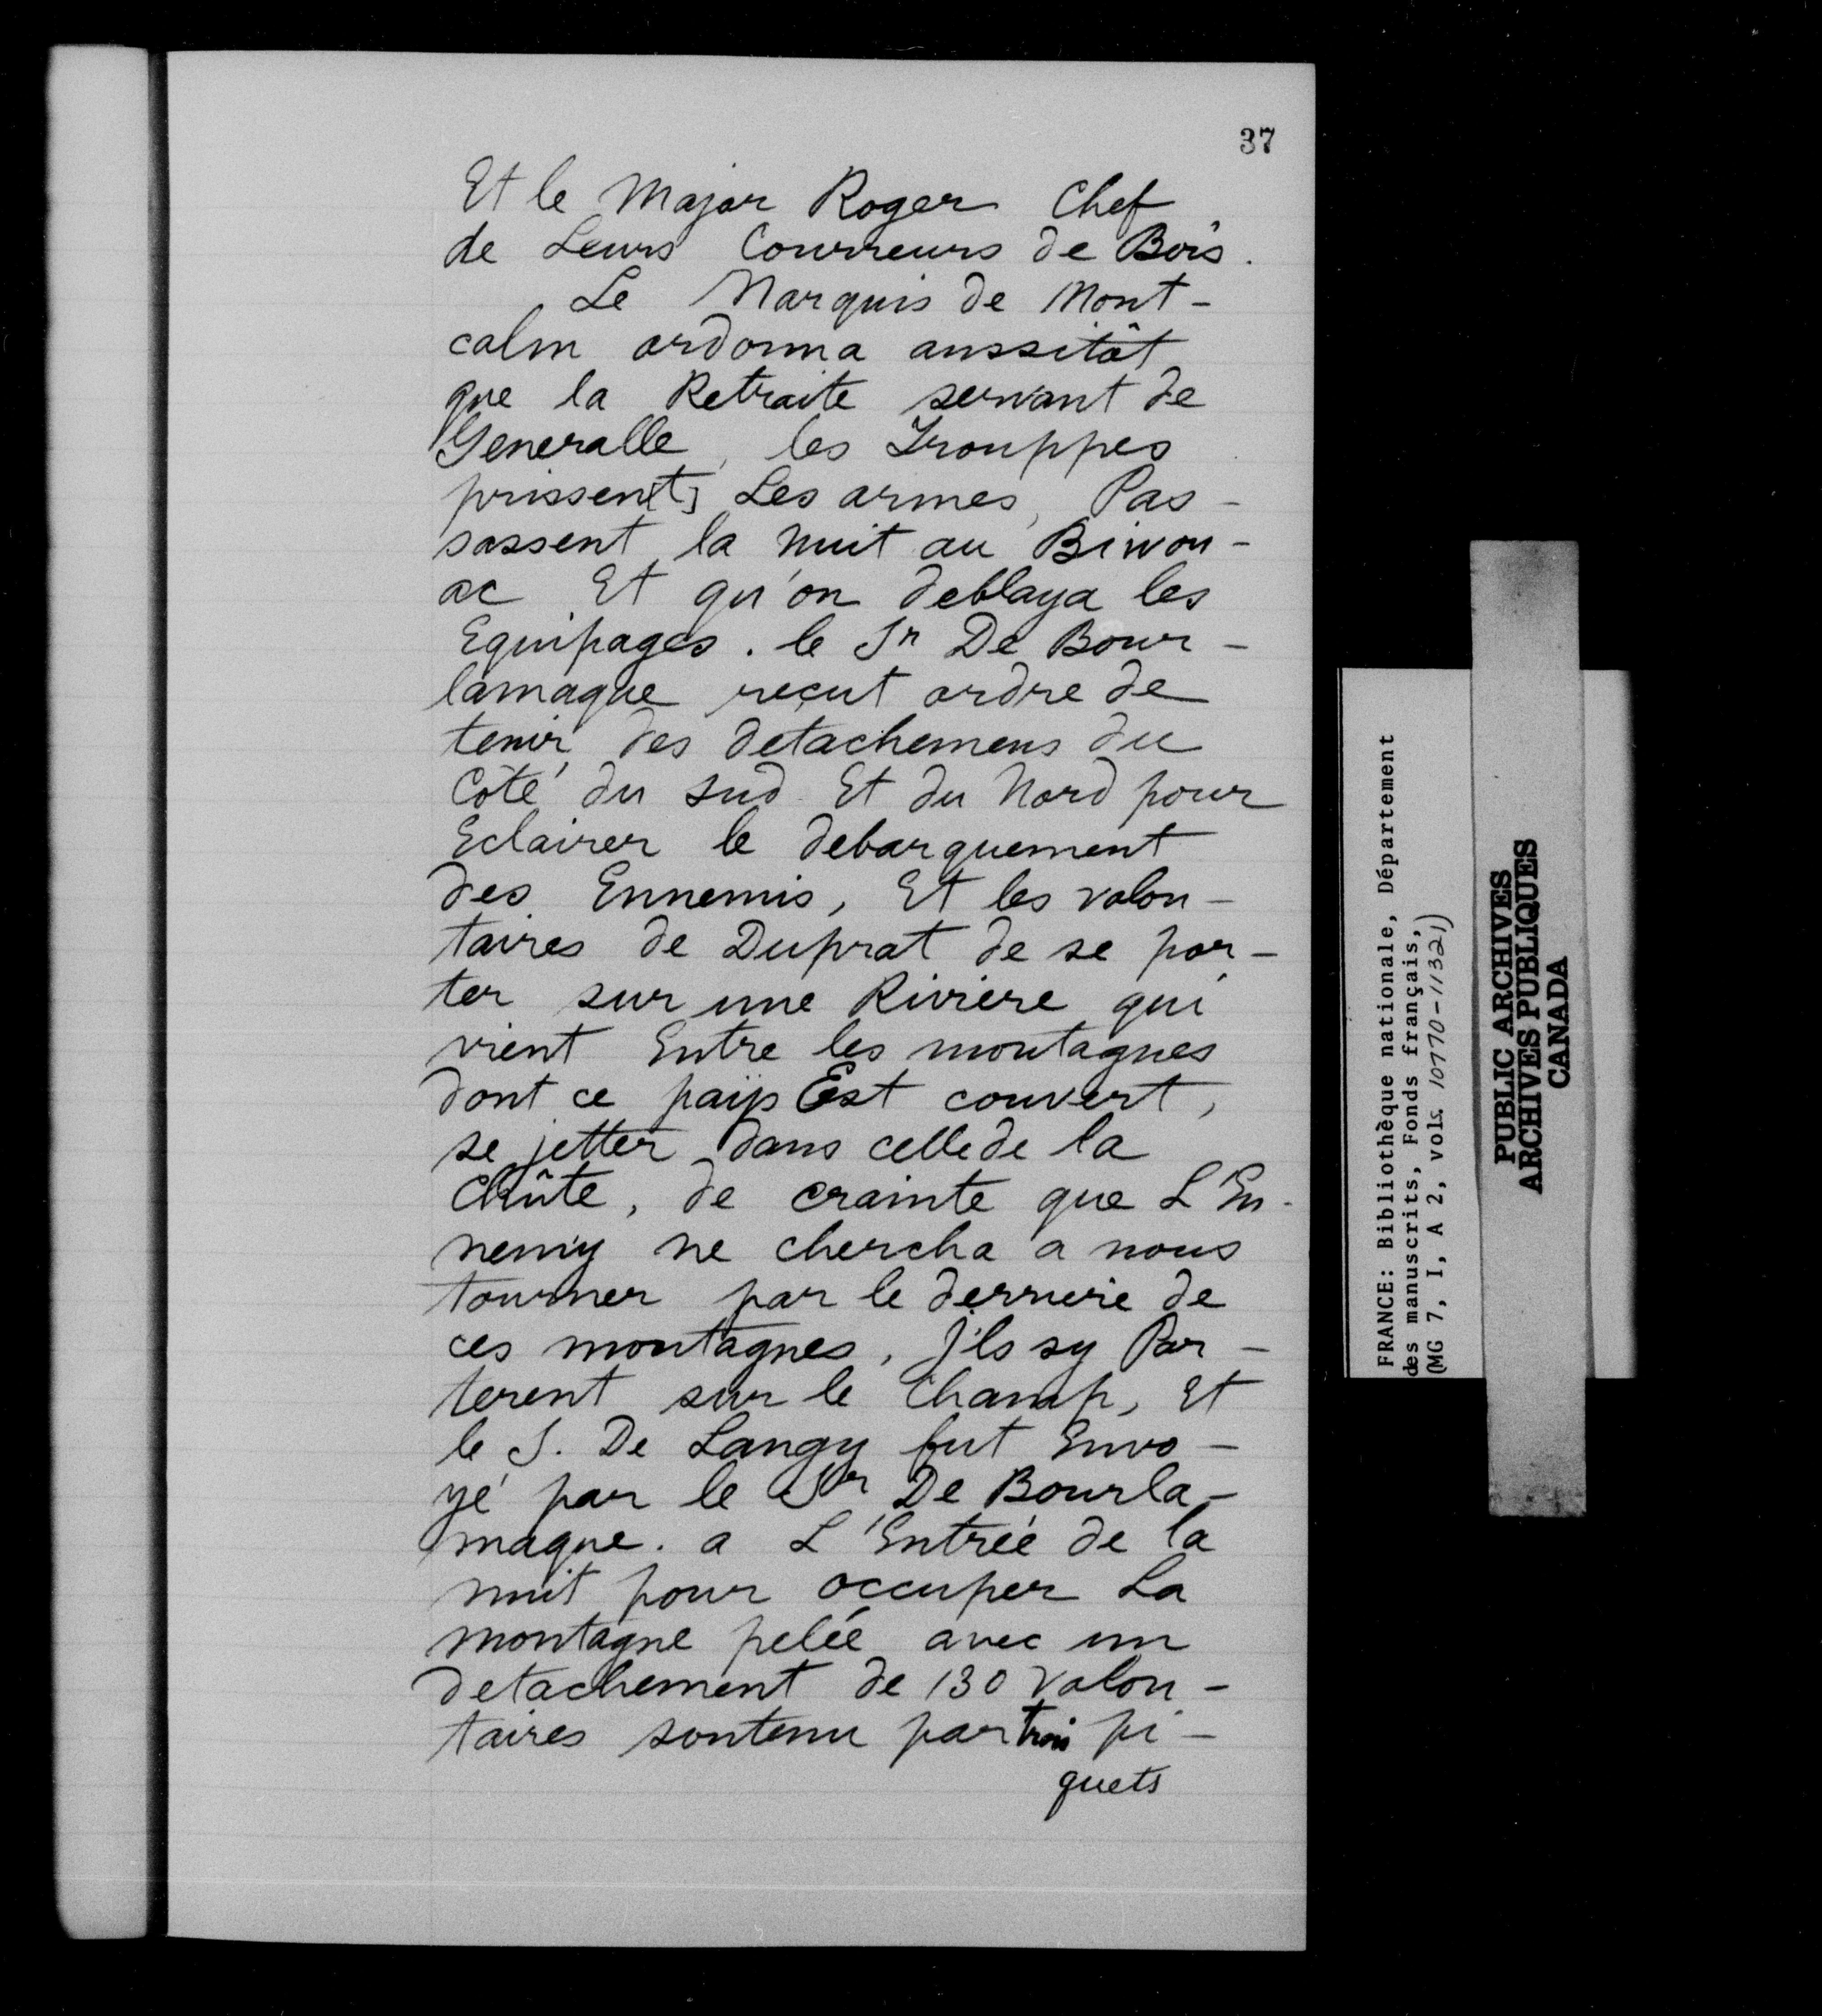 37
Et le Major Roger Chef
de Leurs Courreurs de Bois.
Le Marquis de Mont-
calm ordonna aussitôt
que la Retraite servant de
Generalle, les Trouppes
prissen[t] Les armes, Pas-
sassent la nuit au Bivou-
ac Et qu'on deblaya les
Equipages. le Sr De Bour-
lamaque reçut ordre de
tenir des detachemens du
Côté du sud Et du Nord pour
Eclairer le debarquement
des Ennemis, Et les volon-
taires de Duprat de se por-
ter sur une Riviere qui
vient Entre les montagnes
dont ce païs Est couvert,
se jetter dans celle de la
Chûte, de crainte que L'En-
nemy ne chercha a nous
tourner par le derriere de
ces montagnes, J'ls sy Por-
terent sur le Champ, Et
le S. De Langy fut Envo-
yé par le Sr De Bourla-
maque. a L'Entrée de la
nuit pour occuper La
montagne pelée avec un
detachement de 130 Volon-
taires soutenu par trois pi-
quets
FRANCE: Bibliothèque nationale, Département
des manuscrits, Fonds français,
(MG 7, I, A 2, vols. 10770-11321)
PUBLIC ARCHIVES
ARCHIVES PUBLIQUES
CANADA